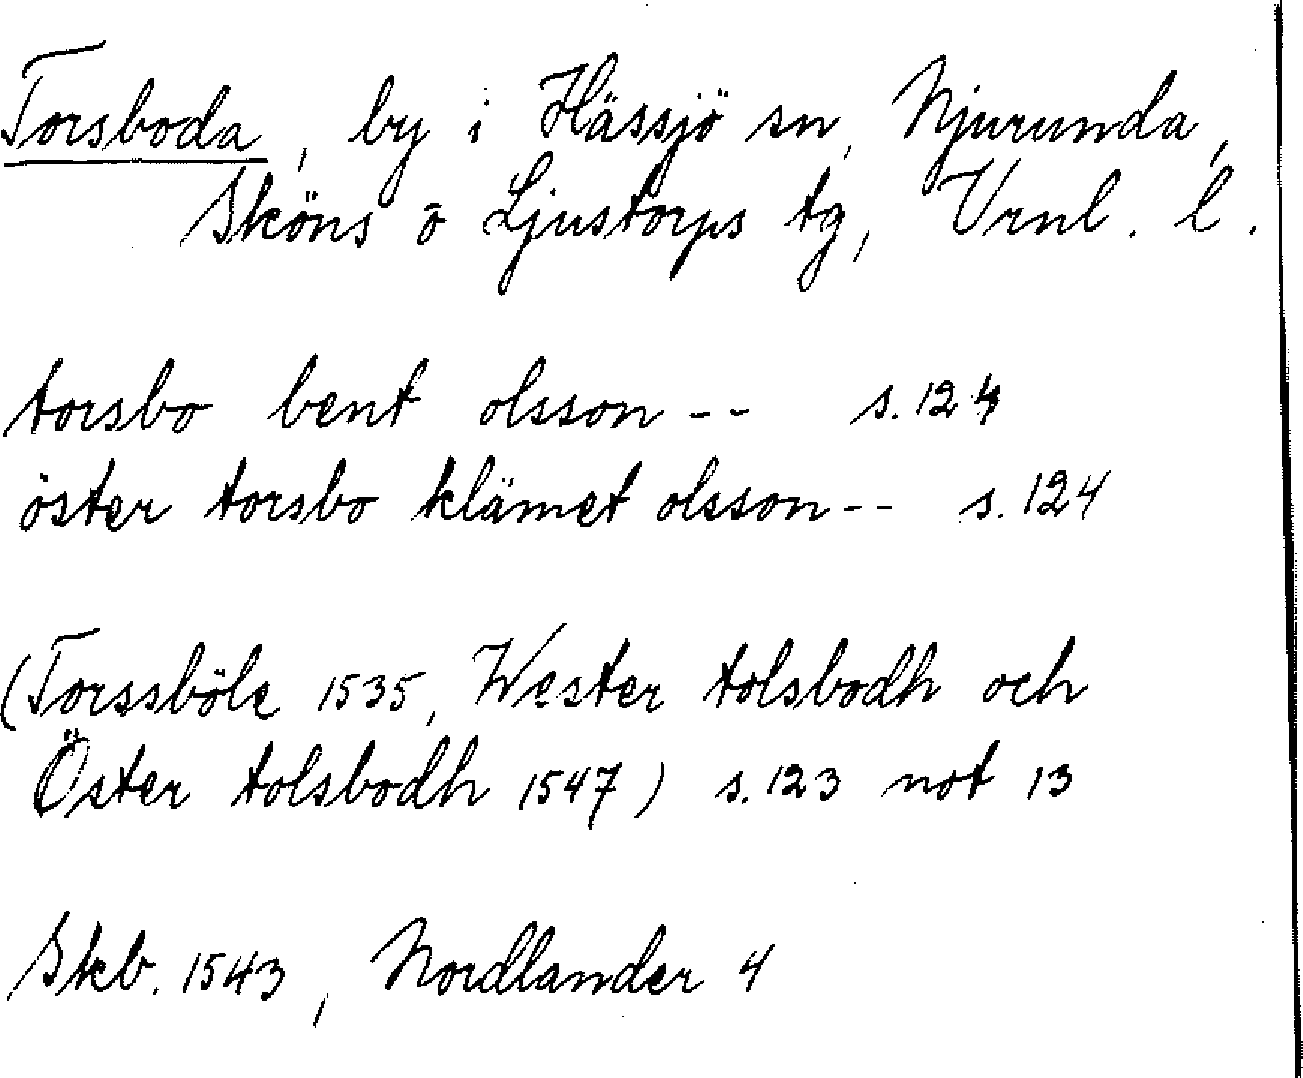 Torsboda, by i Hässjö sn, Njurunda,
Sköns o Ljustorps tg, Vrnl. l.
torsbo bent olsson -- s. 124
öster torsbo klämet olsson -- s. 124
(Torssböle 1535, Wester tolsbodh och
Öster tolsbodh 1547) s. 123 not 13
Skb. 1543, Nordlander 4